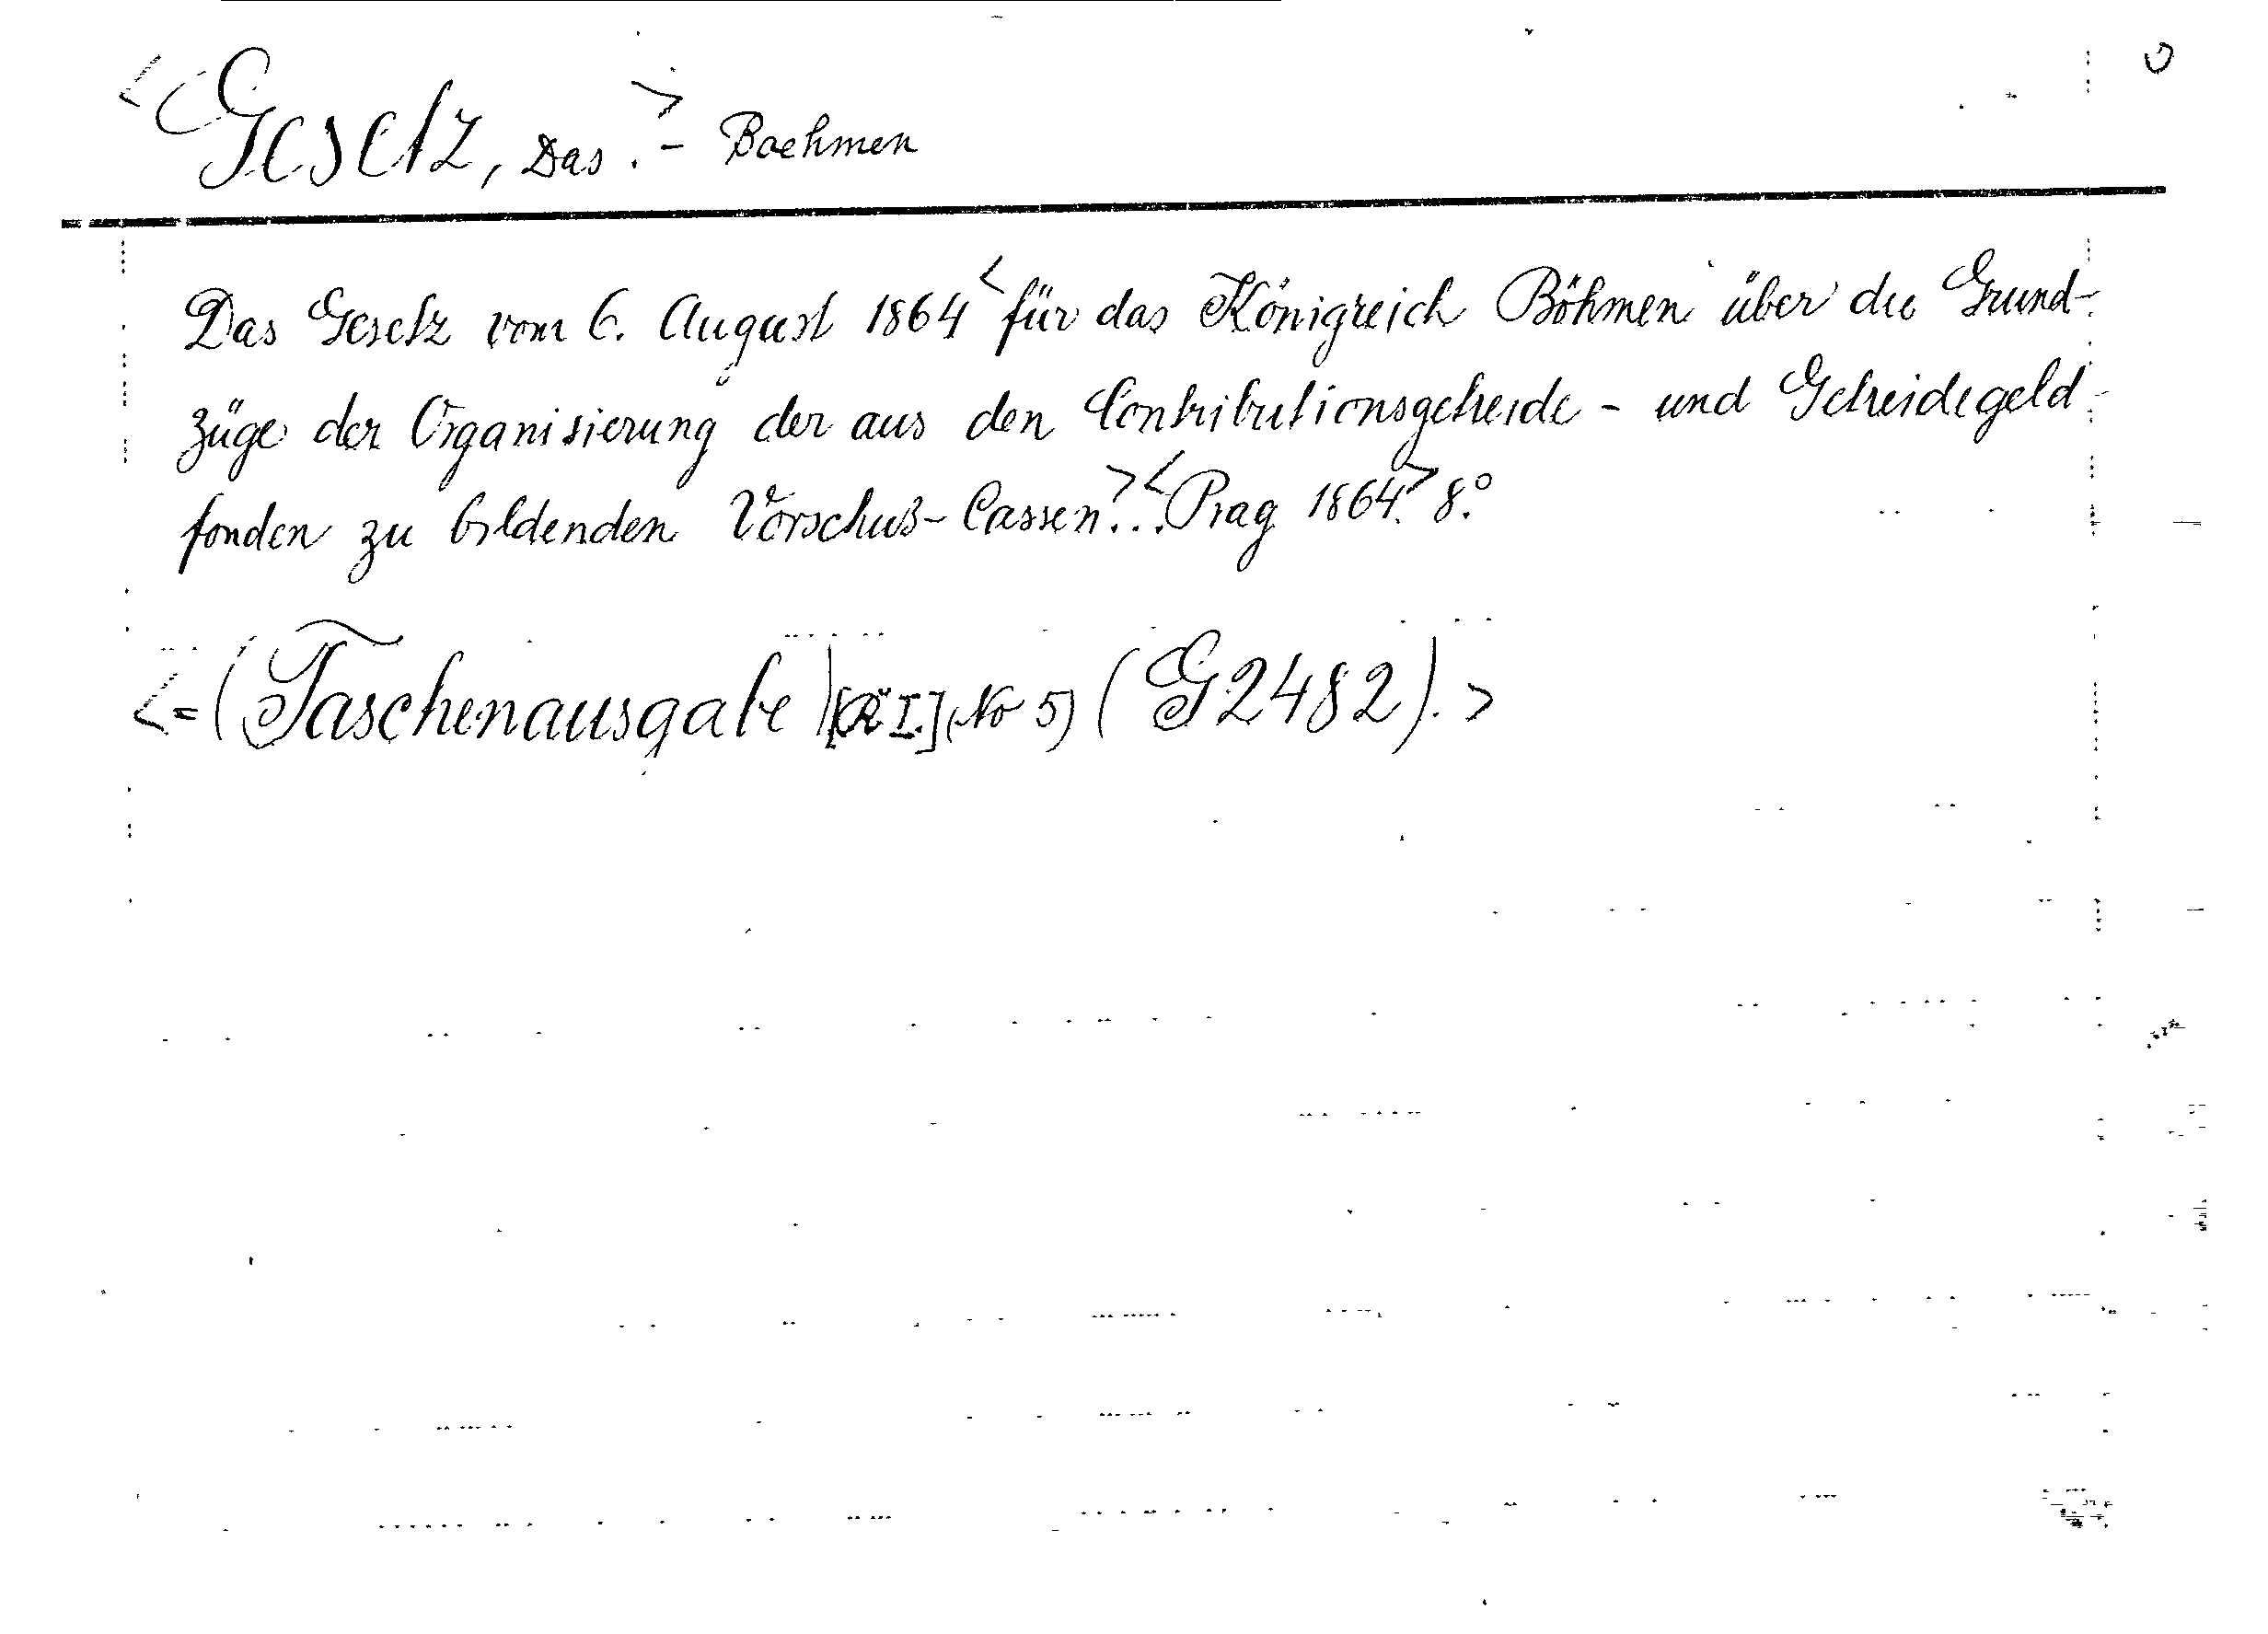 <Gesetz, Das.> - Boehmen
Das Gesetz vom 6. August 1864 <für das Königreich Böhmen über die Grund-
züge der Organisierung der aus den Contributionsgetreide - und Getreidegeld-
fonden zu bildenden Vorschuß-Cassen.>..<Prag 1864.> 8.°
<=(Taschenausgabe) I.] (No 5) (G2482).>